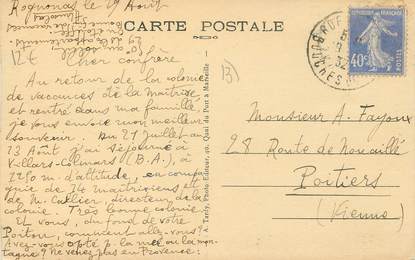 Rognonas le 19 Août
CARTE POSTALE
Cher confrère
Au retour de la colonie
de vacances de la Maîtrise
et rentré dans ma famille
je vous envoie mon meilleur
souvenir. Du 21 Juillet au
13 Août j'ai séjourné à
Villars-Colmars (B.A.), à
1250 m. d'altitude, en compa
gnie de 24 maîtrisiens et
de M. Callier, directeur de la
colonie. Très bonne colonie.
Et vous, du fond de votre
Poitou, comment allez-vous?
Avez-vous opté p. la mer ou la mon-
tagne? Ne venez pas en Provence:
A. Tardy, Photo Editeur, 90, Quai du Port à Marseille
40c
32
Monsieur A. Fayoux
28 Route de Nouaillé
Poitiers
(Vienne)